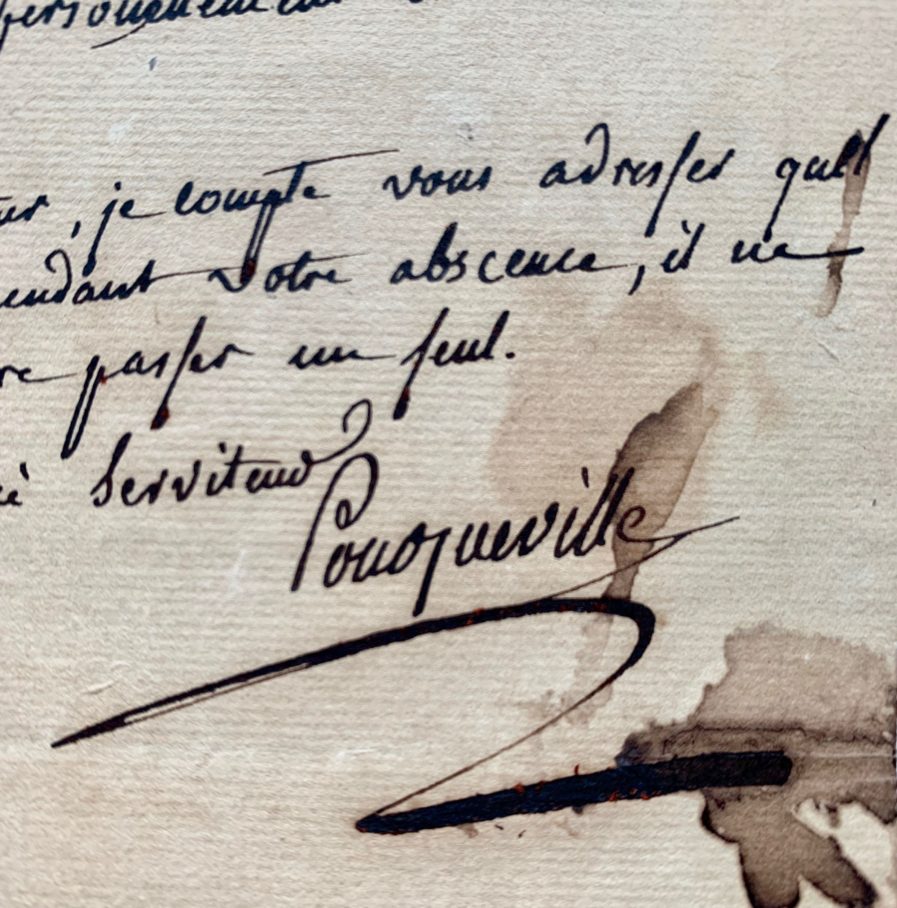 je compte vous adresser quel
pendant votre abscence, il ne
passer un seul.
Serviteur
Pouqueville